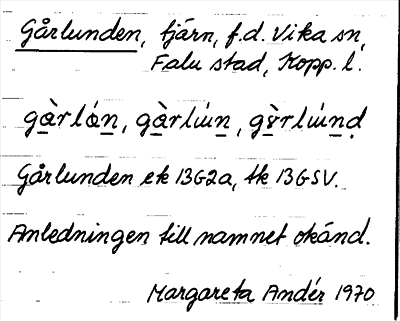 Gårlunden, tjärn, f.d. Vika sn,
Falu stad, Kopp. l.
gàrlón, gàrlún, gàrlúnd
Gårlunden ek 13G2a, tk 13GSV.
Anledningen till namnet okänd.
Margareta Andér 1970